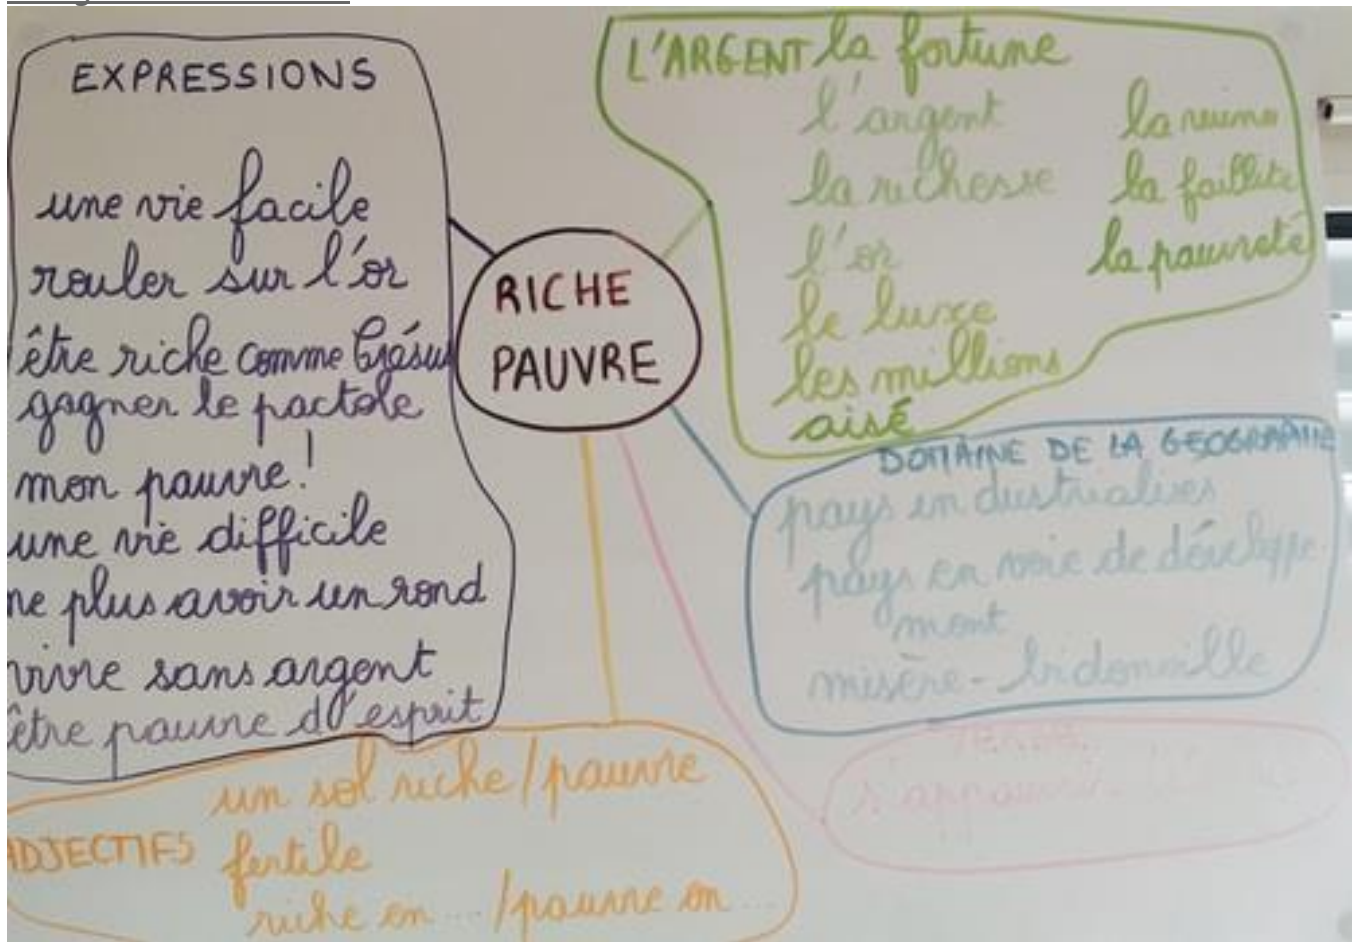 EXPRESSIONS
une vie facile
rouler sur l'or
être riche comme Crésus
gagner le pactole
mon pauvre !
une vie difficile
ne plus avoir un rond
vivre sans argent
être pauvre d'esprit
RICHE
PAUVRE
L'ARGENT la fortune
l'argent
la richesse
l'or
le luxe
les millions
aisé
la ruine
la faillite
la pauvreté
DOMAINE DE LA GEOGRAPHIE
pays industrialisés
pays en voie de développe
ment
misère - bidonville
s'appauvrir
ADJECTIFS
un sol riche / pauvre
fertile
riche en ... / pauvre en ...